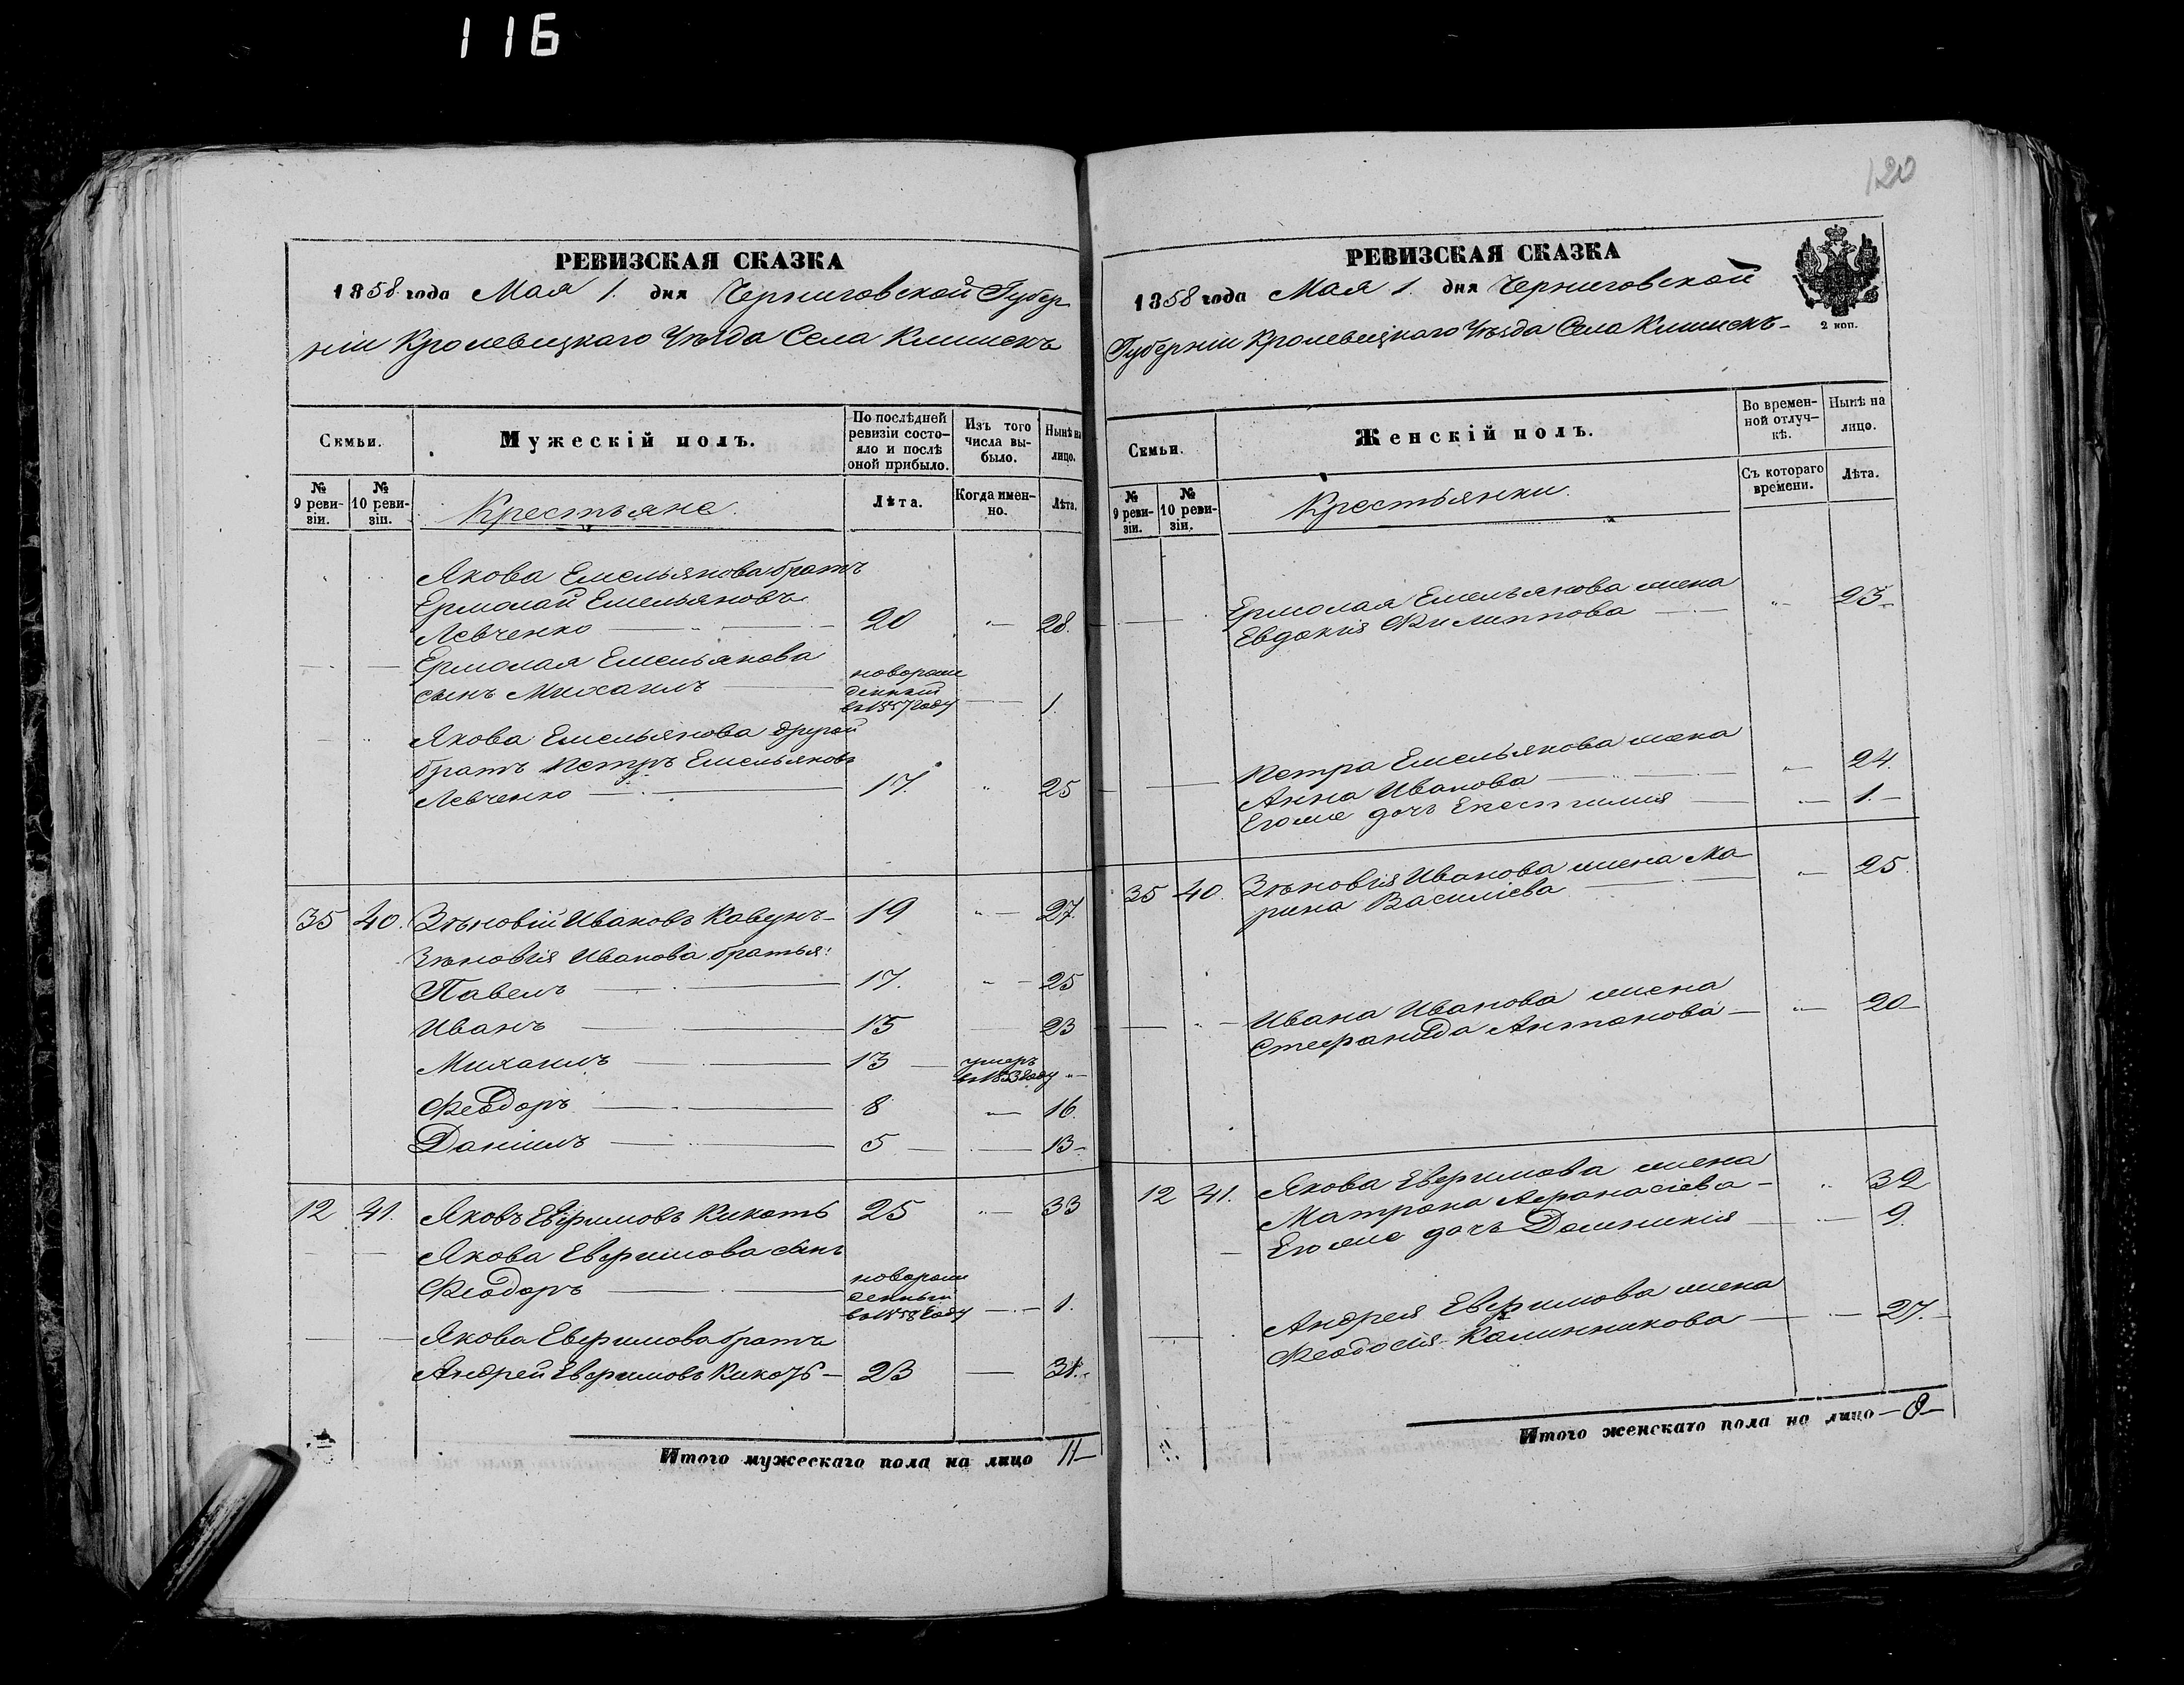 116
РЕВИЗСКАЯ СКАЗКА
1858 года Мая 1. дня Черниговской Губер
ніи Кролевецкаго Уѣзда Села Клишекъ
Семьи.
Мужескій полъ.
По послѣдней ревизіи состо-
яло и послѣ оной прибыло.
Изъ того числа вы-
было.
Нынѣ на лицо.
№ 9 реви-
зіи.
№ 10 реви-
зіи.
Крестьяне.
Лѣта.
Когда имен-
но.
Лѣта.
Якова Емельянова братъ
Ермолай Емельяновъ
Левченко 20 28.
Ермолая Емельянова
сынъ Михаилъ новорож
денный
въ 1857 году 1.
Якова Емельянова другой
братъ Петръ Емельяновъ
Левченко 17. 25
35 40. Зѣновій Ивановъ Кавунъ 19 27.
Зѣновія Иванова братья:
Павелъ 17. 25
Иванъ 15 23
Михаилъ 13 умеръ
въ 1853 году
Феодоръ 8 16.
Даніилъ 5 13
12 41. Яковъ Евфимовъ Кикоть 25 33
Якова Евфимова сынъ
Феодоръ новорож
денный
въ 1858 году 1.
Якова Евфимова братъ
Андрей Евфимовъ Кикоть 23 31.
Итого мужескаго пола на лицо 11
120
РЕВИЗСКАЯ СКАЗКА
1858 года Мая 1. дня Черниговской
Губерніи Кролевецкаго Уѣзда Села Клишекъ
2 коп.
Семьи.
Женскій полъ.
Во времен-
ной отлуч-
кѣ.
Нынѣ на лицо.
№ 9 реви-
зіи.
№ 10 реви-
зіи.
Крестьянки.
Съ котораго времени.
Лѣта.
Ермолая Емельянова жена
Евдокія Филиппова 23
Петра Емельянова жена
Анна Иванова 24.
Егоже дочь Епестимія 1.
35 40. Зѣновія Иванова жена Ма
рина Василіева 25.
Ивана Иванова жена
Стефанида Антонова 20
12 41. Якова Евфимова жена
Матрона Афанасіева 32
Егоже дочь Домникія 9.
Андрея Евфимова жена
Феодосія Калинникова 27.
Итого женскаго пола на лицо 8